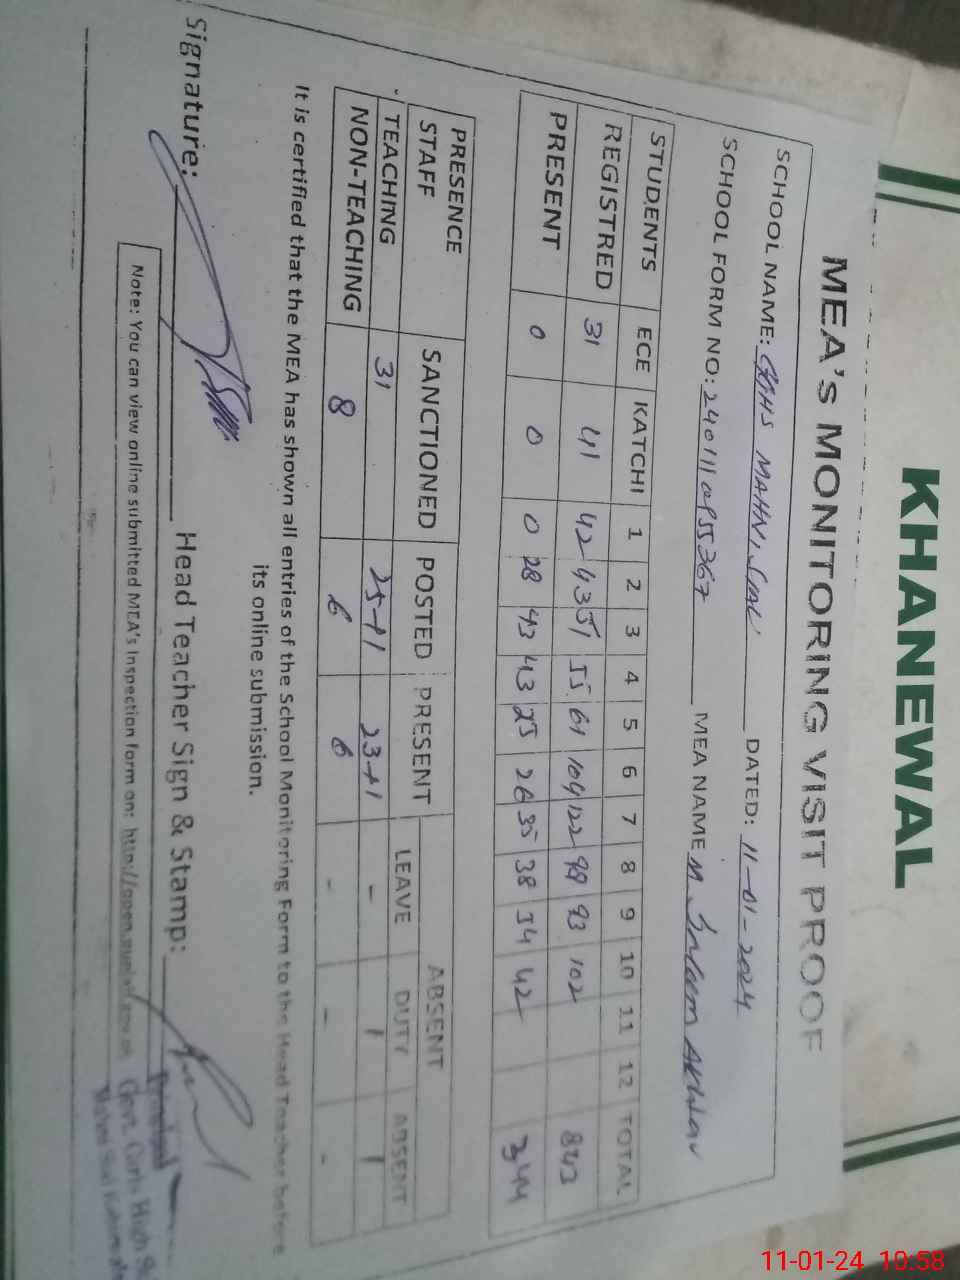 KHANEWAL
MEA's MONITORING VISIT PROOF
SCHOOL NAME: GGHS MAHNI SIAL DATED: 11-01-2024
SCHOOL FORM NO: MEA NAME M. Akhtar
STUDENTS ECE KATCHI 1 2 3 4 5 6 7 8 9 10 11 12 TOTAL
REGISTRED 31 41 42 43 51 55 61 104 122 98 93 102 843
PRESENT 0 0 0 28 43 43 25 26 35 38 34 42 344
PRESENCE STAFF SANCTIONED POSTED PRESENT ABSENT
LEAVE DUTY ABSENT
TEACHING 31 25+1 23+1 - 1 1
NON-TEACHING 8 6 6 - - -
It is certified that the MEA has shown all entries of the School Monitoring Form to the Head Teacher before
its online submission.
Signature: Head Teacher Sign & Stamp:
Note: You can view online submitted MEA's Inspection form on: http://open.punjab.gov.pk
Govt. Girls High
11-01-24 10:58